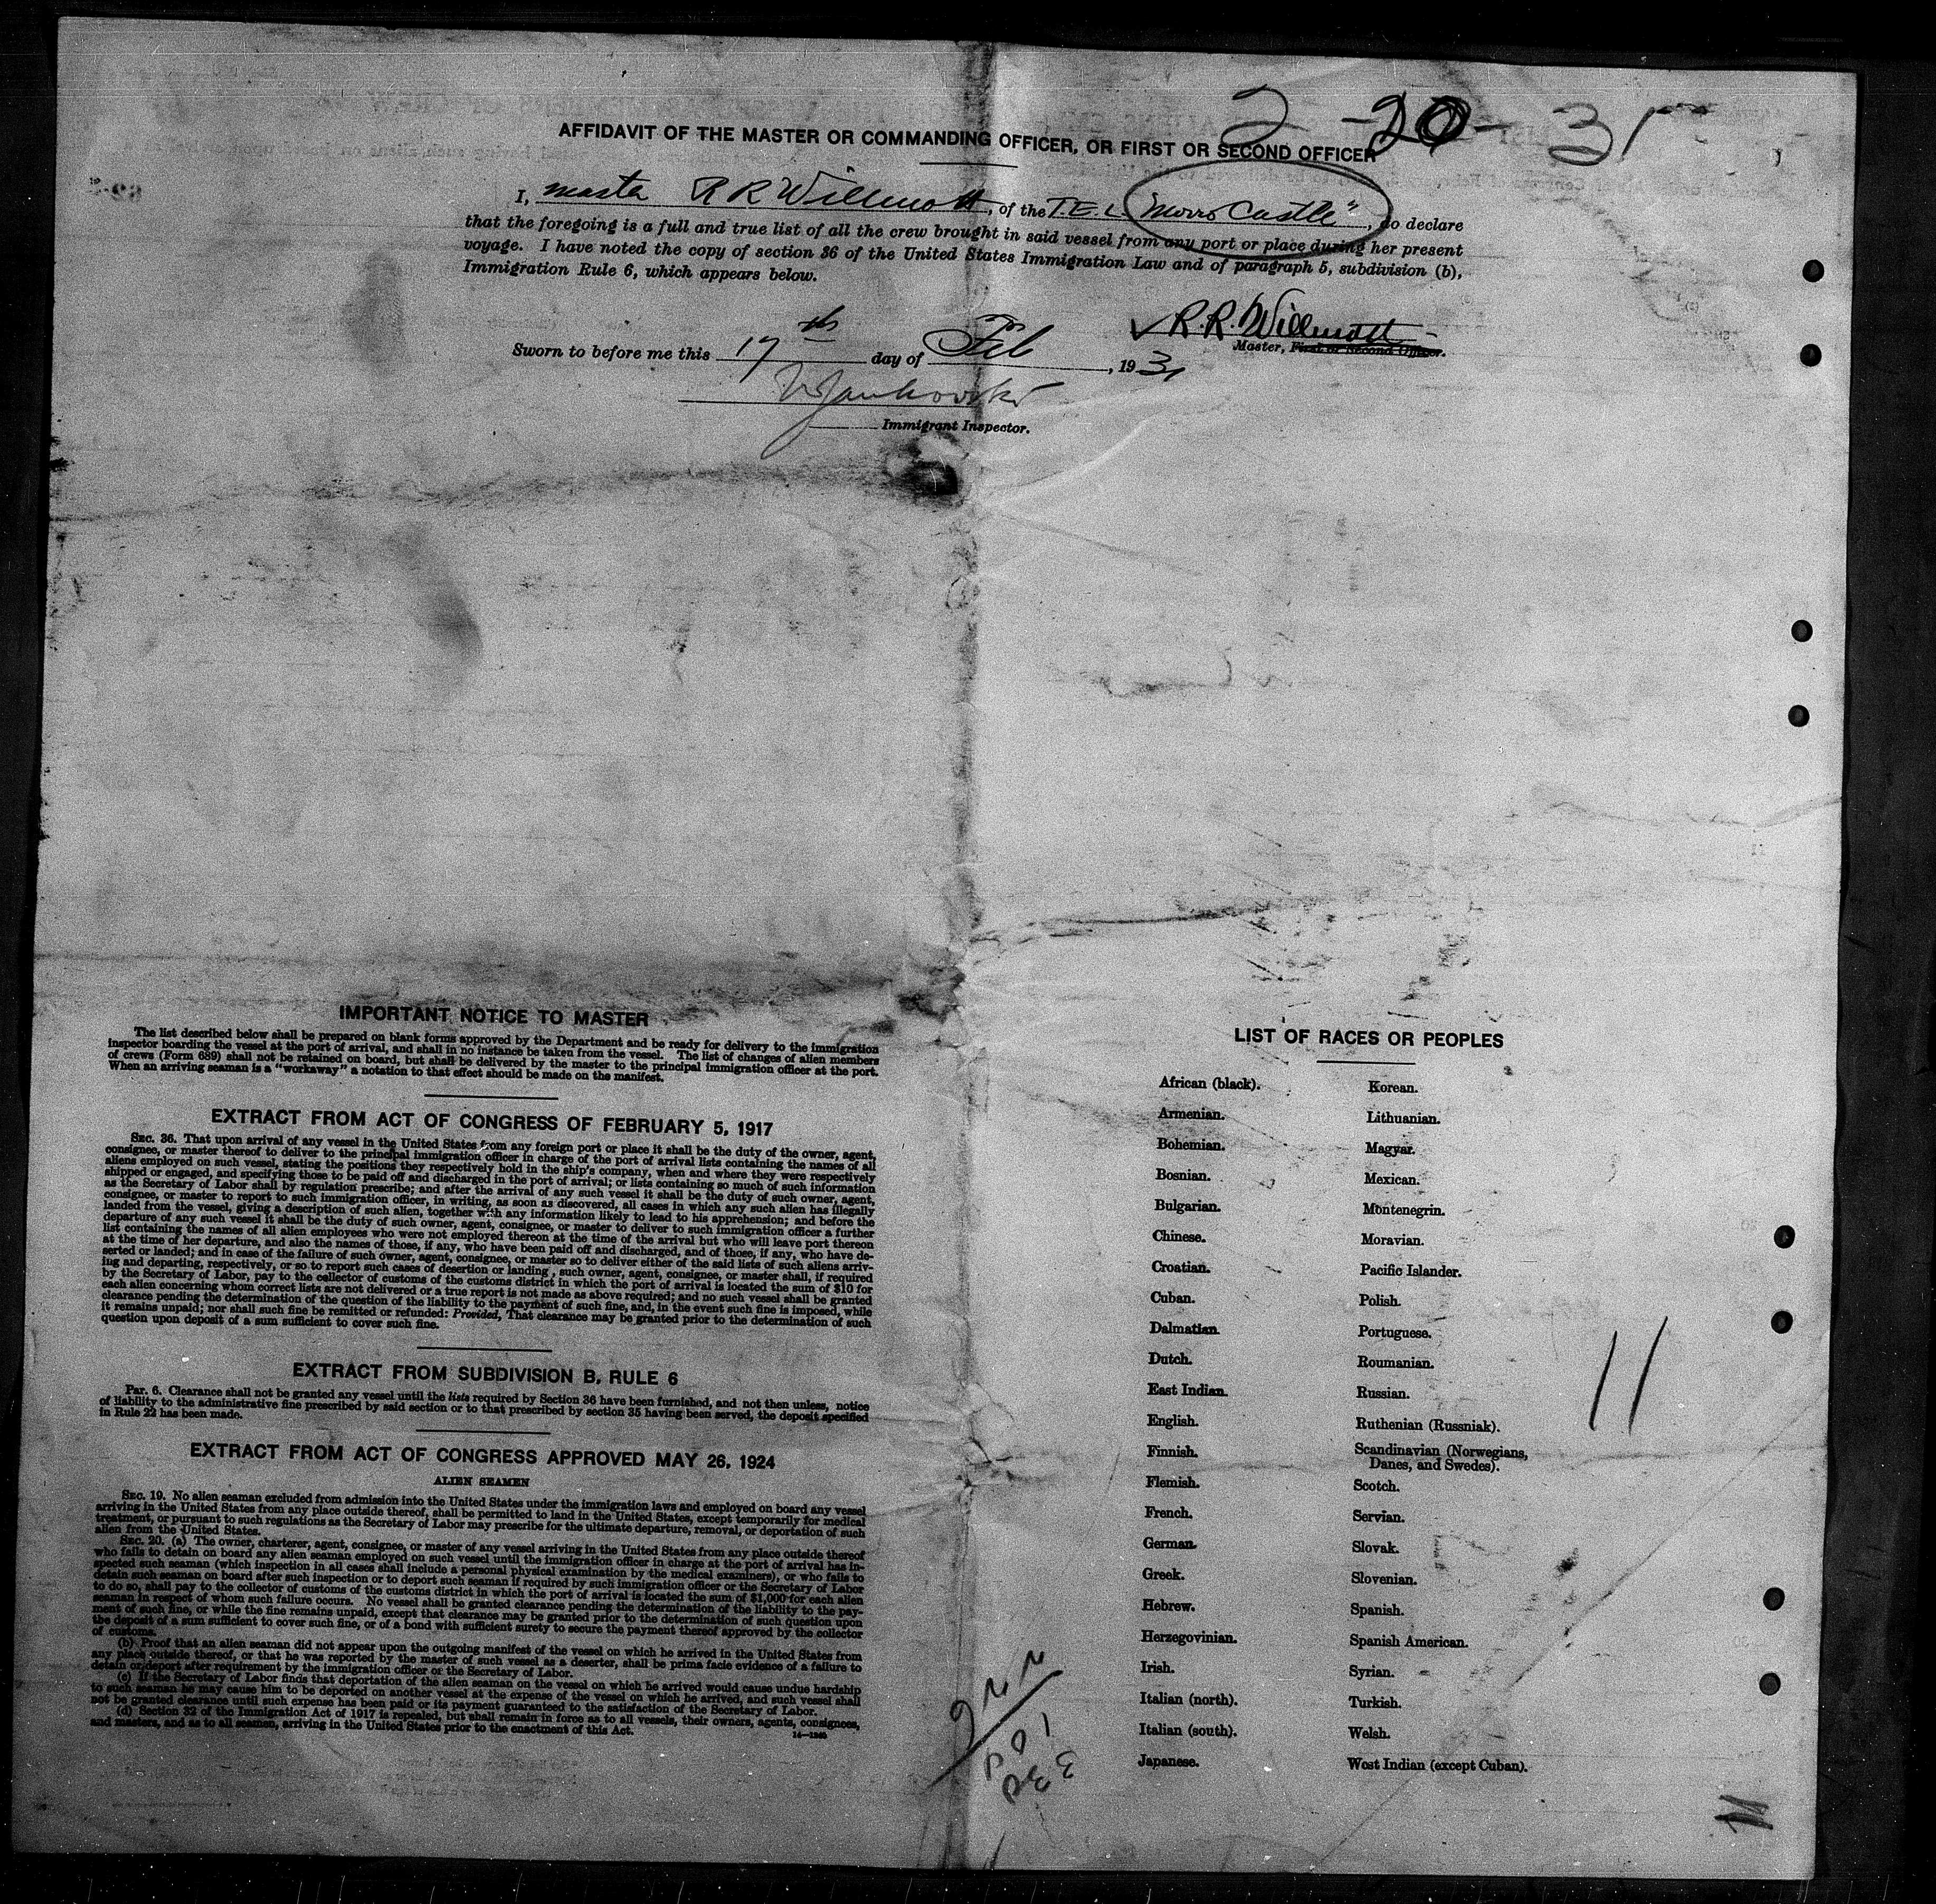 AFFIDAVIT OF THE MASTER OR COMMANDING OFFICER, OR FIRST OR SECOND OFFICER
I, master R R Willmott, of the T.E.L "Morro Castle", do declare
that the foregoing is a full and true list of all the crew brought in said vessel from any port or place during her present
voyage. I have noted the copy of section 36 of the United States Immigration Law and of paragraph 5, subdivision (b),
Immigration Rule 6, which appears below.
R.R. Willmott
Master, First or Second Officer.
Sworn to before me this 17th day of Feb, 1931
Immigrant Inspector.
IMPORTANT NOTICE TO MASTER
The list described below shall be prepared on blank forms approved by the Department and be ready for delivery to the immigration
inspector boarding the vessel at the port of arrival, and shall in no instance be taken from the vessel. The list of changes of alien members
of crews (Form 689) shall not be retained on board, but shall be delivered by the master to the principal immigration officer at the port.
When an arriving seaman is a "workaway" a notation to that effect should be made on the manifest.
EXTRACT FROM ACT OF CONGRESS OF FEBRUARY 5, 1917
SEC. 36. That upon arrival of any vessel in the United States from any foreign port or place it shall be the duty of the owner, agent,
consignee, or master thereof to deliver to the principal immigration officer in charge of the port of arrival lists containing the names of all
aliens employed on such vessel, stating the positions they respectively hold in the ship's company, when and where they were respectively
shipped or engaged, and specifying those to be paid off and discharged in the port of arrival; or lists containing so much of such information
as the Secretary of Labor shall by regulation prescribe; and after the arrival of any such vessel it shall be the duty of such owner, agent,
consignee, or master to report to such immigration officer, in writing, as soon as discovered, all cases in which any such alien has illegally
landed from the vessel, giving a description of such alien, together with any information likely to lead to his apprehension; and before the
departure of any such vessel it shall be the duty of such owner, agent, consignee, or master to deliver to such immigration officer a further
list containing the names of all alien employees who were not employed thereon at the time of the arrival but who will leave port thereon
at the time of her departure, and also the names of those, if any, who have been paid off and discharged, and of those, if any, who have de-
serted or landed; and in case of the failure of such owner, agent, consignee, or master so to deliver either of the said lists of such aliens arriv-
ing and departing, respectively, or so to report such cases of desertion or landing, such owner, agent, consignee, or master shall, if required
by the Secretary of Labor, pay to the collector of customs of the customs district in which the port of arrival is located the sum of $10 for
each alien concerning whom correct lists are not delivered or a true report is not made as above required; and no such vessel shall be granted
clearance pending the determination of the question of the liability to the payment of such fine, and, in the event such fine is imposed, while
it remains unpaid; nor shall such fine be remitted or refunded: Provided, That clearance may be granted prior to the determination of such
question upon deposit of a sum sufficient to cover such fine.
EXTRACT FROM SUBDIVISION B, RULE 6
Par. 6. Clearance shall not be granted any vessel until the lists required by Section 36 have been furnished, and not then unless, notice
of liability to the administrative fine prescribed by said section or to that prescribed by section 35 having been served, the deposit specified
in Rule 22 has been made.
EXTRACT FROM ACT OF CONGRESS APPROVED MAY 26, 1924
ALIEN SEAMEN
SEC. 19. No alien seaman excluded from admission into the United States under the immigration laws and employed on board any vessel
arriving in the United States from any place outside thereof, shall be permitted to land in the United States, except temporarily for medical
treatment, or pursuant to such regulations as the Secretary of Labor may prescribe for the ultimate departure, removal, or deportation of such
alien from the United States.
SEC. 20. (a) The owner, charterer, agent, consignee, or master of any vessel arriving in the United States from any place outside thereof
who fails to detain on board any alien seaman employed on such vessel until the immigration officer in charge at the port of arrival has in-
spected such seaman (which inspection in all cases shall include a personal physical examination by the medical examiners), or who fails to
detain such seaman on board after such inspection or to deport such seaman if required by such immigration officer or the Secretary of Labor
to do so, shall pay to the collector of customs of the customs district in which the port of arrival is located the sum of $1,000 for each alien
seaman in respect of whom such failure occurs. No vessel shall be granted clearance pending the determination of the liability to the pay-
ment of such fine, or while the fine remains unpaid, except that clearance may be granted prior to the determination of such question upon
the deposit of a sum sufficient to cover such fine, or of a bond with sufficient surety to secure the payment thereof approved by the collector
of customs.
(b) Proof that an alien seaman did not appear upon the outgoing manifest of the vessel on which he arrived in the United States from
any place outside thereof, or that he was reported by the master of such vessel as a deserter, shall be prima facie evidence of a failure to
detain or deport after requirement by the immigration officer or the Secretary of Labor.
(c) If the Secretary of Labor finds that deportation of the alien seaman on the vessel on which he arrived would cause undue hardship
to such seaman he may cause him to be deported on another vessel at the expense of the vessel on which he arrived, and such vessel shall
not be granted clearance until such expense has been paid or its payment guaranteed to the satisfaction of the Secretary of Labor.
(d) Section 32 of the Immigration Act of 1917 is repealed, but shall remain in force as to all vessels, their owners, agents, consignees,
and masters, and as to all seamen, arriving in the United States prior to the enactment of this Act.
LIST OF RACES OR PEOPLES
African (black).
Armenian.
Bohemian.
Bosnian.
Bulgarian.
Chinese.
Croatian.
Cuban.
Dalmatian.
Dutch.
East Indian.
English.
Finnish.
Flemish.
French.
German.
Greek.
Hebrew.
Herzegovinian.
Irish.
Italian (north).
Italian (south).
Japanese.
Korean.
Lithuanian.
Magyar.
Mexican.
Montenegrin.
Moravian.
Pacific Islander.
Polish.
Portuguese.
Roumanian.
Russian.
Ruthenian (Russniak).
Scandinavian (Norwegians,
Danes, and Swedes).
Scotch.
Servian.
Slovak.
Slovenian.
Spanish.
Spanish American.
Syrian.
Turkish.
Welsh.
West Indian (except Cuban).
11